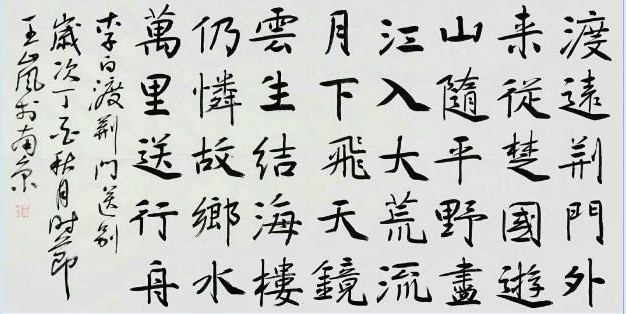 渡遠荆門外
来從楚國遊
山隨平野盡
江入大荒流
月下飛天鏡
雲生結海樓
仍憐故鄉水
萬里送行舟
李白渡荆門送别
歲次丁酉秋月时節
王嵐於南京